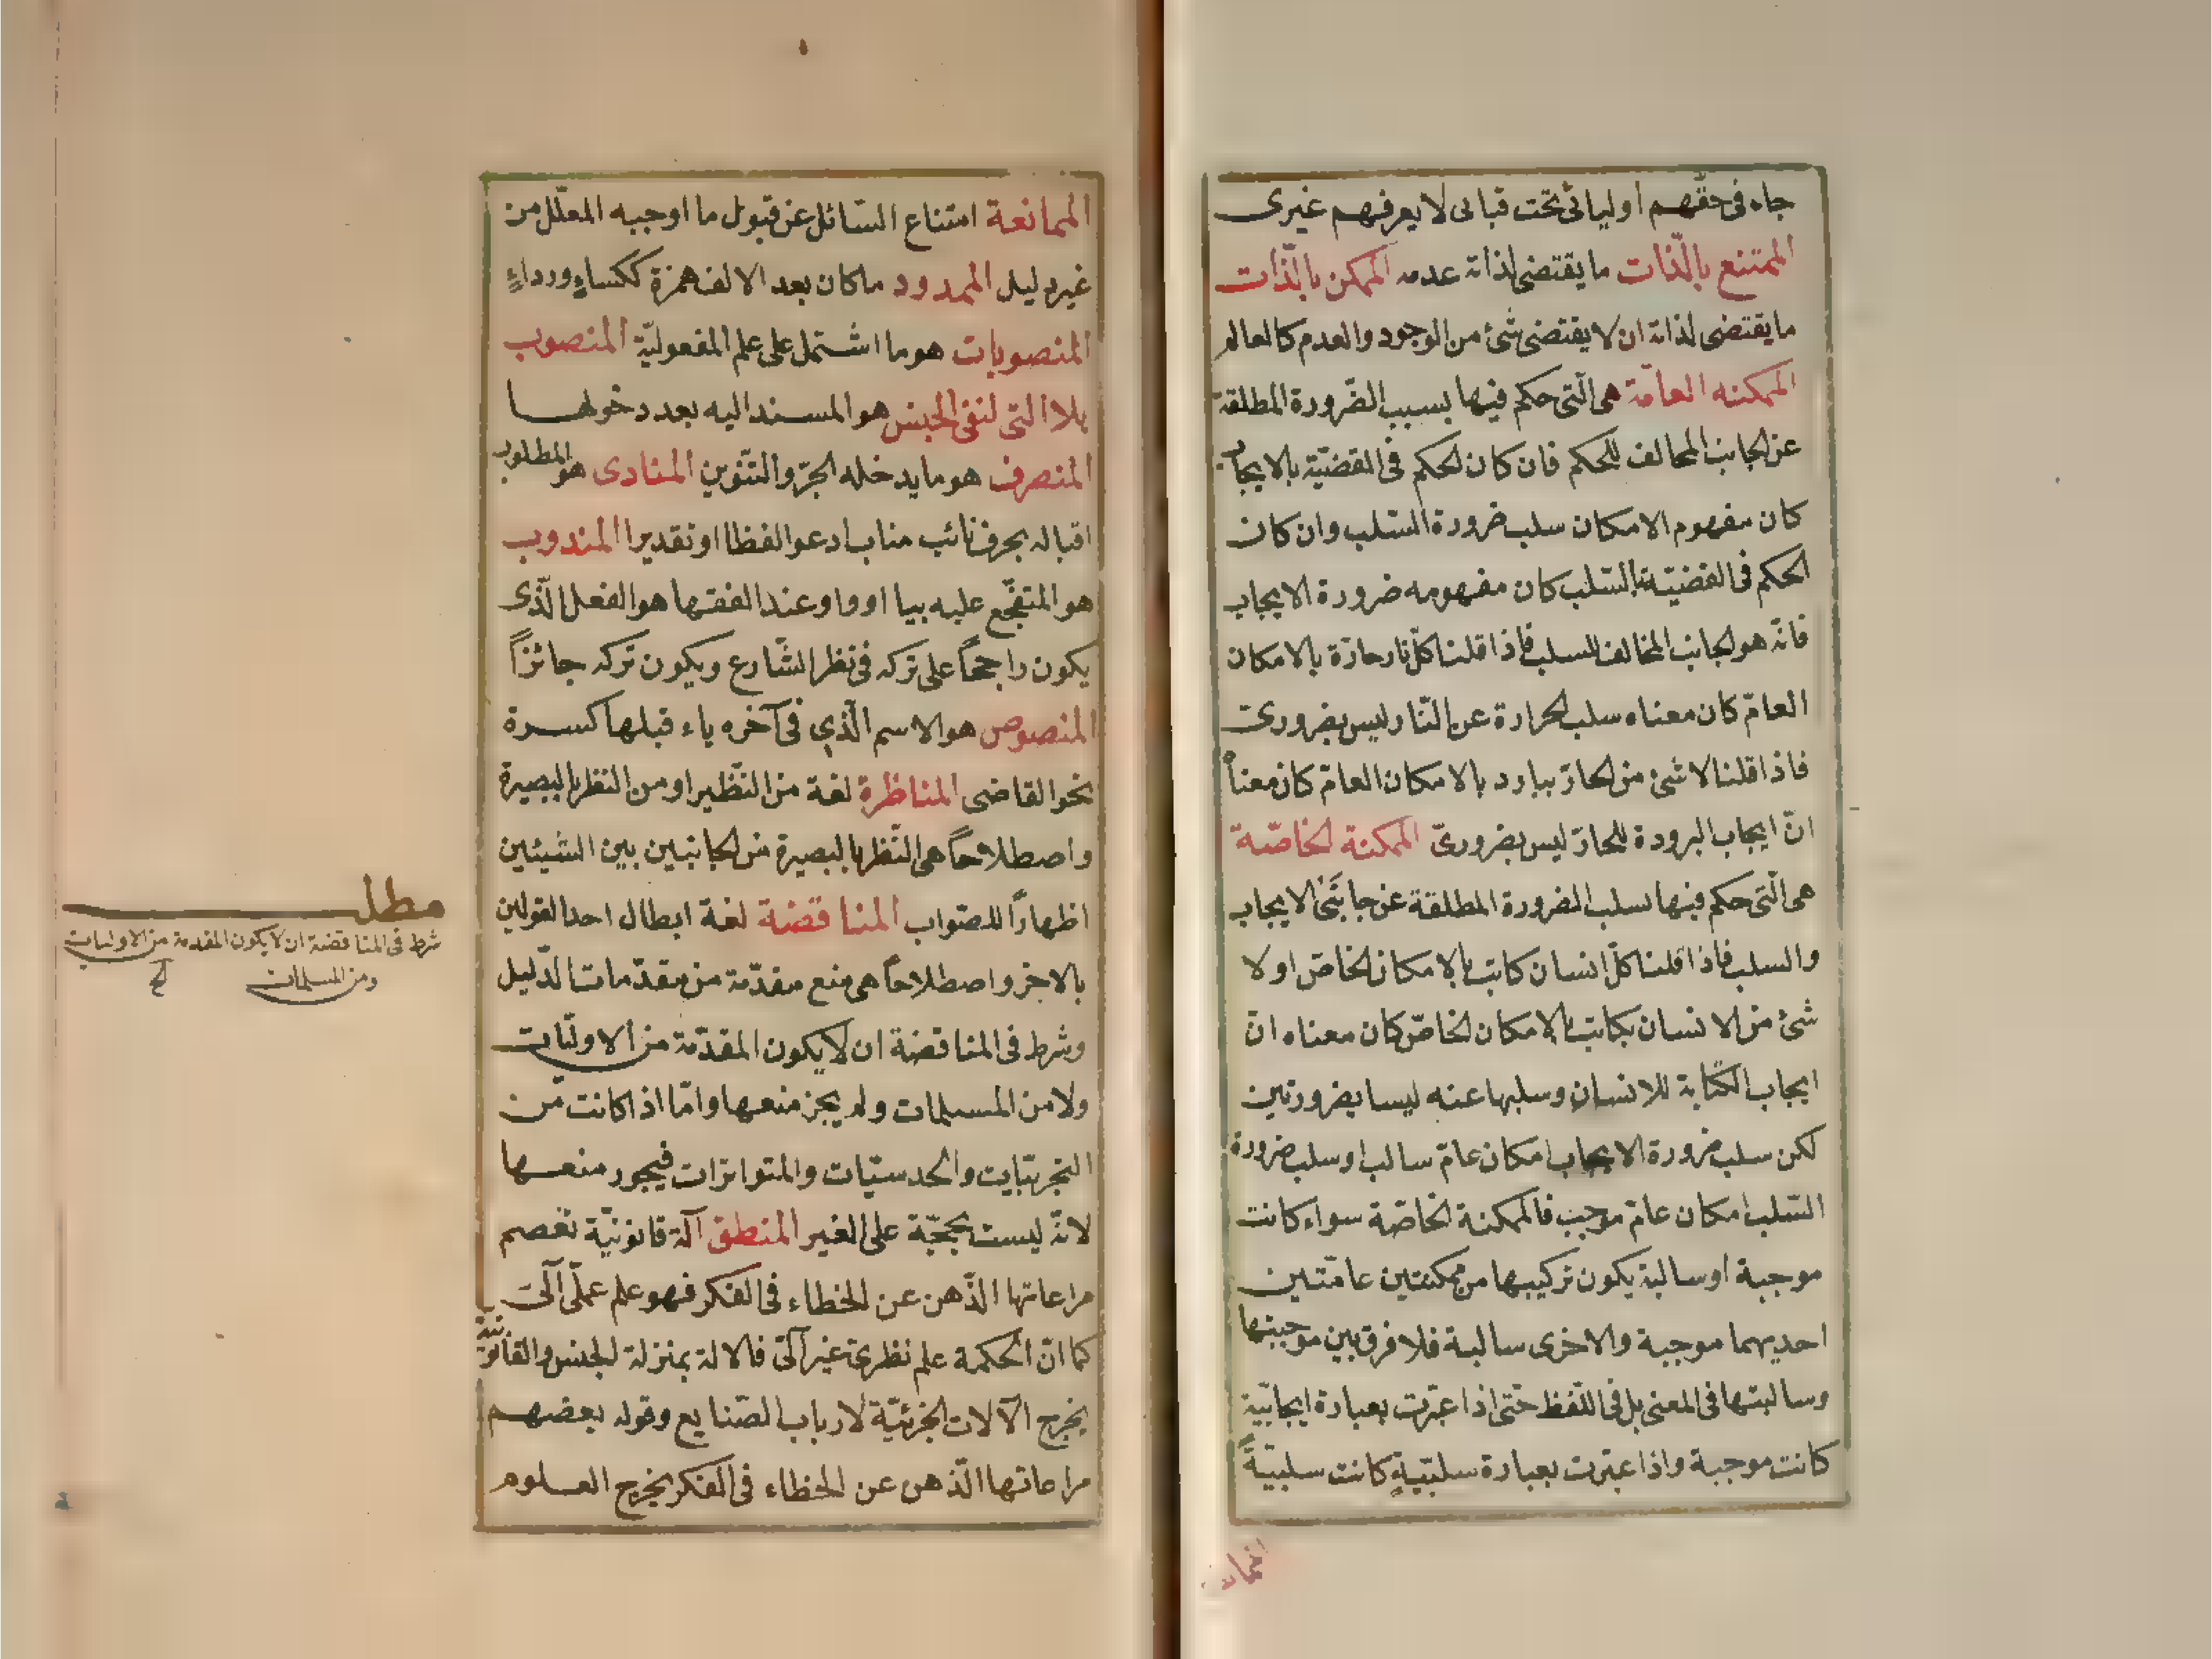 جاء فى حقّهم اوليائى تحت قبابى لا يعرفهم غيرى
الممتنع بالذّات ما يقتضى لذاته عدمه الممكن بالذّات
ما يقتضى لذاته ان لا يقتضى شئ من الوجود والعدم كالعالم
الممكنه العامّة هى الّتى حكم فيها بسبب الضّرورة المطلقة
عن الجانب المخالف للحكم فان كان الحكم فى القضيّة بالايجاب
كان مفهوم الامكان سلب ضرورة السّلب وان كان
الحكم فى القضيّة بالسّلب كان مفهومه ضرورة الايجاب
فانّه هو الجانب المخالف للسلب فاذا قلنا كلّ نار حارّة بالامكان
العامّ كان معناه سلب الحرارة عن النّار ليس بضرورىّ
فاذا قلنا لا شئ من الحارّ ببارد بالامكان العامّ كان معناه
انّ ايجاب البرودة للحارّ ليس بضرورىّ الممكنة الخاصّة
هى الّتى حكم فيها بسلب الضرورة المطلقة عن جانبى الايجاب
والسلب فاذا قلنا كلّ انسان كاتب بالامكان الخاصّ او لا
شئ من الانسان بكاتب بالامكان الخاصّ كان معناه انّ
ايجاب الكتابة للانسان وسلبها عنه ليسا بضروريّين
لكن سلب ضرورة الايجاب امكان عامّ سالب او سلب ضرورة
السّلب امكان عامّ موجب فالممكنة الخاصّة سواء كانت
موجبة او سالبة يكون تركيبها من ممكنتين عامّتين
احديهما موجبة والاخرى سالبة فلا فرق بين موجبتها
وسالبتها فى المعنى بل فى اللّفظ حتّى اذا عبّرت بعبارة ايجابيّة
كانت موجبة واذا عبّرت بعبارة سلبيّةٍ كانت سلبيّةً
الممانعة امتناع السّائل عن قبول ما اوجبه المعلّل من
غير دليل الممدود ما كان بعد الالف همزة ككساءٍ ورداءٍ
المنصوبات هو ما اشتمل على علم المفعوليّة المنصوب
بلا الّتى لنفى الجنس هو المسند اليه بعد دخولها
المنصرف هو ما يدخله الجرّ والتّنوين المنادى هو المطلوب
اقباله بحرف نائب مناب ادعو الفظا او تقديرا المندوب
هو المتفجّع عليه بيا او وا وعند الفقها هو الفعل الّذى
يكون راجحاً على تركه فى نظر الشّارع ويكون تركه جائزاً
المنصوص هو الاسم الّذى فى آخره ياء قبلها كسرة
نحو القاضى المناظرة لغة من النّظير او من النظر بالبصيرة
واصطلاحاً هى النّظر بالبصيرة من الجانبين بين الشيئين
اظهاراً للصّواب المناقضة لغة ابطال احد القولين
بالاخر واصطلاحاً هى منع مقدّمة من مقدّمات الدّليل
وشرط فى المناقضة ان لا يكون المقدّمة من الاوليّات
ولا من المسلمات ولم يجز منعها وامّا اذا كانت من
التجربيّات والحدسيّات والمتواترات فيجوز منعها
لانّه ليست بحجّة على الغير المنطق آلة قانونيّة تعصم
مراعاتها الذّهن عن الخطاء فى الفكر فهو علم عملىّ آلىّ
كما انّ الحكمة علم نظرىّ غير آلىّ فالالة بمنزلة الجنس والقانونية
يخرج الآلات الجزئيّة لارباب الصّنايع وقوله بعضهم
مراعاتها الذّهن عن الخطاء فى الفكر يخرج العلوم
مطلب
شرط فى المناقضة ان لا يكون المقدمة من الاوليات
ومن المسلمات